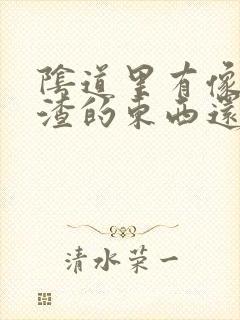 陰道里有像
渣的東西還
清水荣一